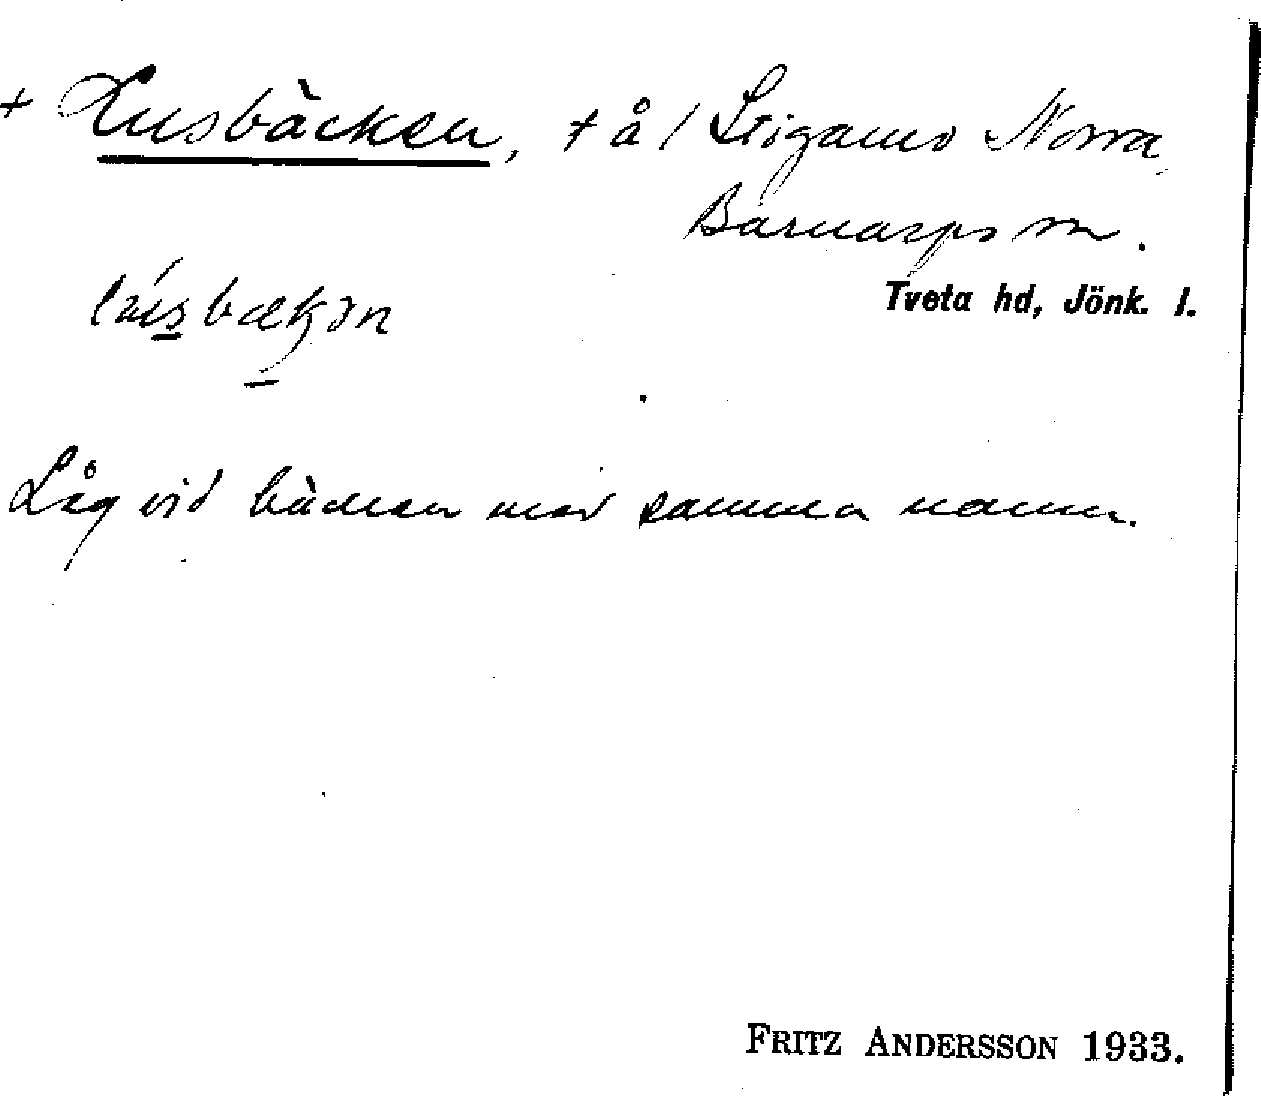 + Lusbäcken, + å / Stigamo Norra,
Barnarps sn.
Tveta hd, Jönk. l.
Låg vid bäcken med samma namn.
FRITZ ANDERSSON 1933.